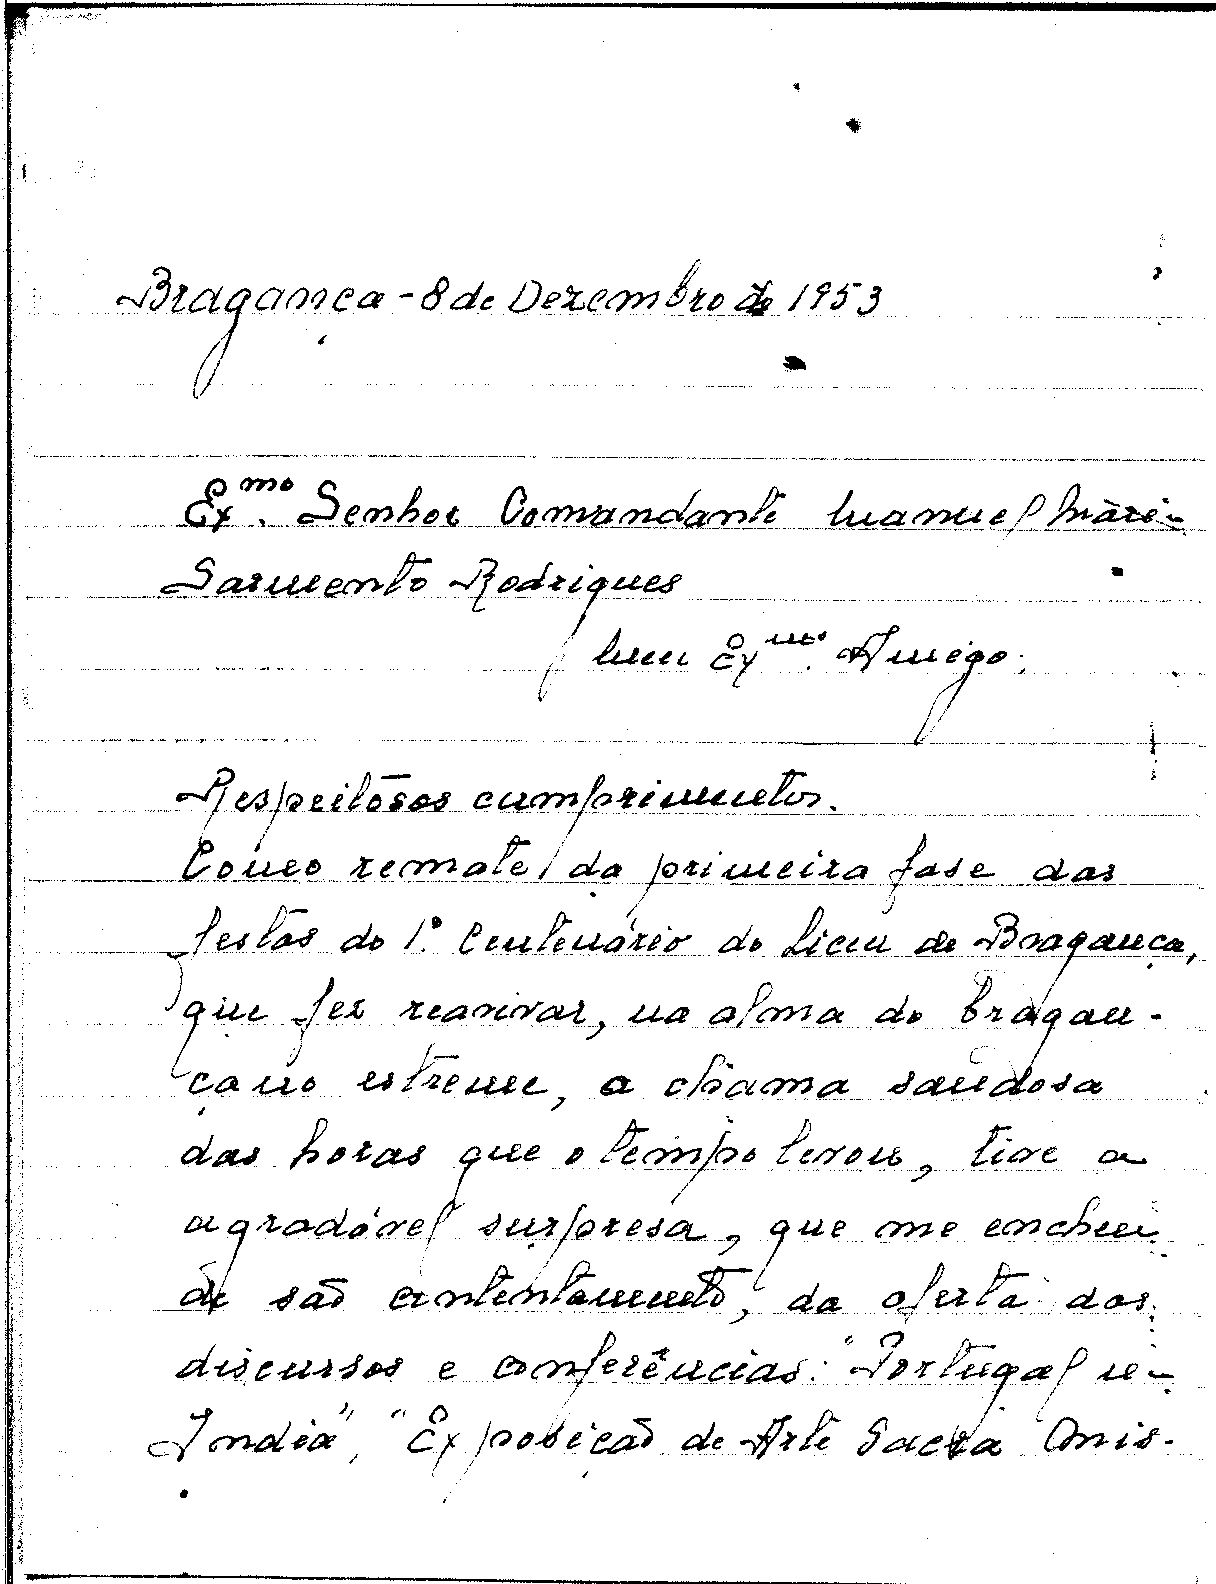 Bragança - 8 de Dezembro de 1953
Ex.mo Senhor Comandante Manuel Maria
Sarmento Rodrigues
Meu Ex.mo Amigo:
Respeitosos cumprimentos.
Como remate da primeira fase das
festas do 1.º Centenário do Liceu de Bragança,
que fez reavivar, na alma do bragan-
çano estreme, a chama saudosa
das horas que o tempo levou, tive a
agradável surpresa, que me encheu
de são contentamento, da oferta dos
discursos e conferências: "Portugal na
India", "Exposição de Arte Sacra Mis-